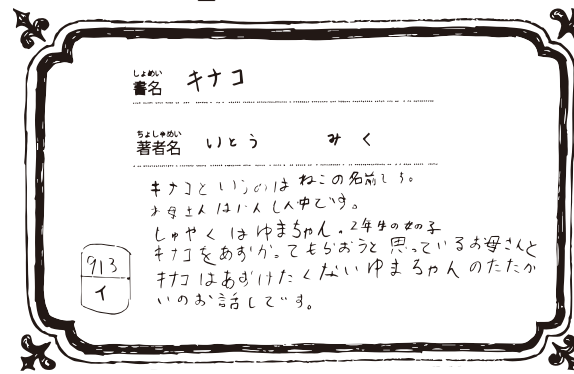 しょめい
書名 キナコ
ちょしゃめい
著者名 いとう みく
キナコというのはねこの名前です。
お母さんはにんしん中です。
しゅやくはゆまちゃん。2年生の女の子
キナコをあずかってもらおうと思っているお母さんと
キナコはあずけたくないゆまちゃんのたたか
いのお話しです。
913
イ